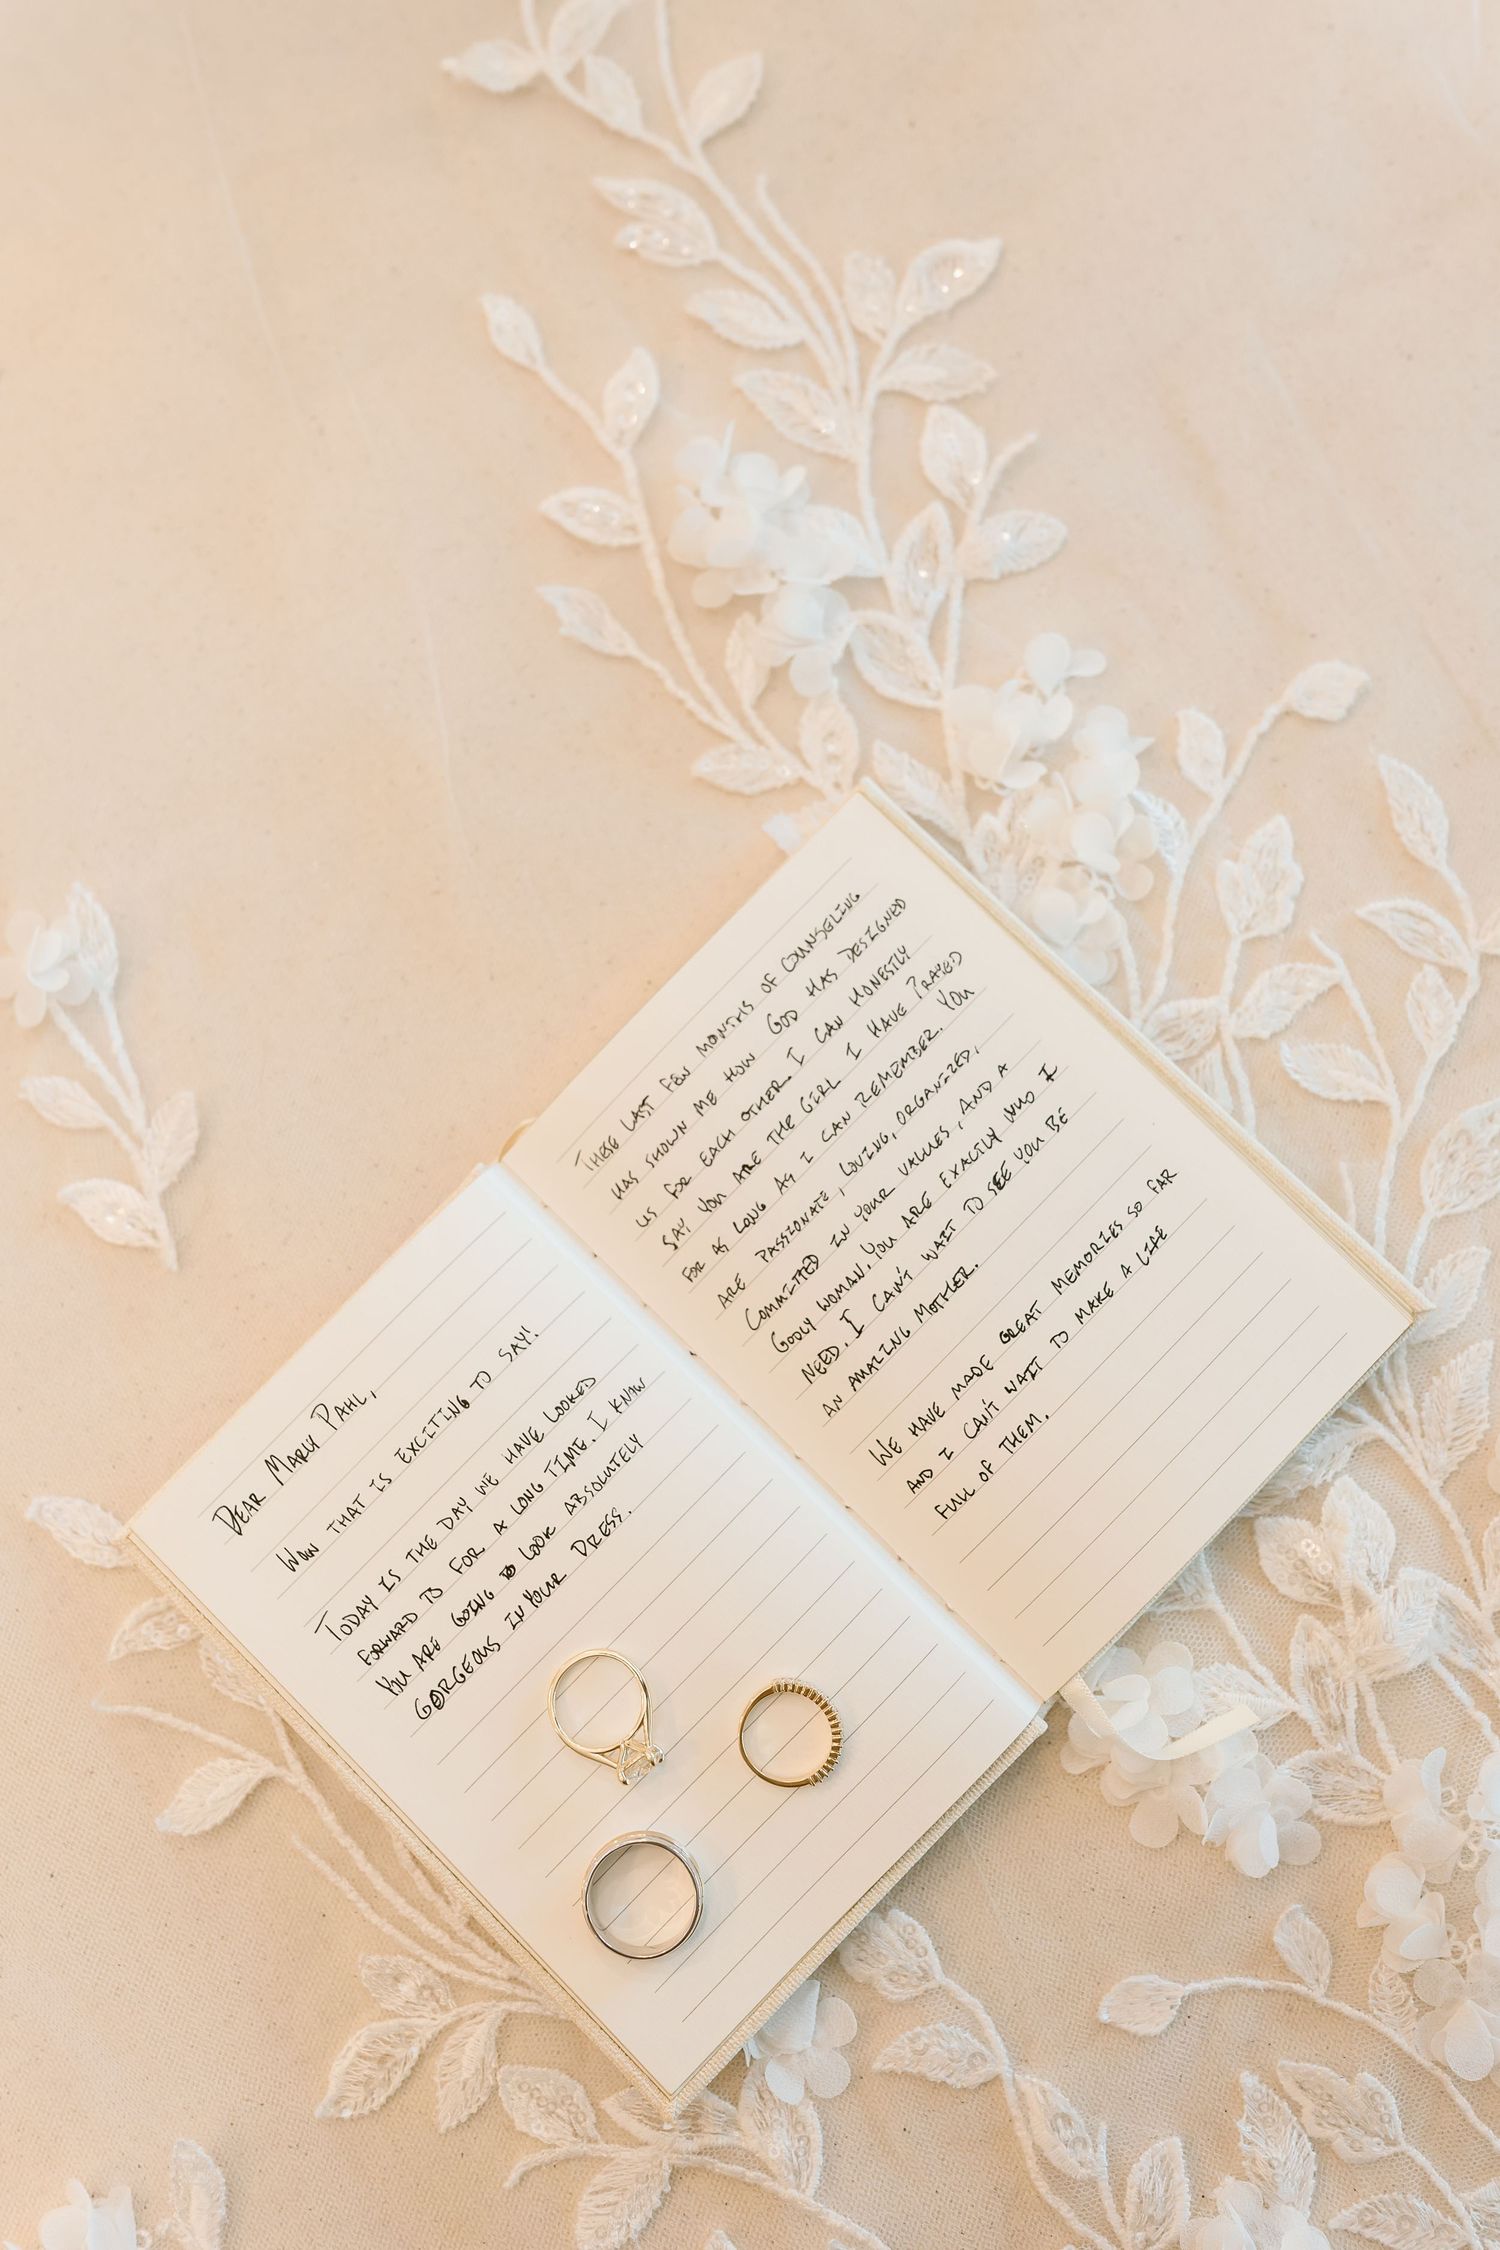 Dear Marly Pahl,
Wow that is exciting to say!
Today is the day we have looked
forward to for a long time. I know
you are going to look absolutely
gorgeous in your dress.
These last few months of counseling
has shown me how God has designed
us for each other. I can honestly
say you are the girl I have prayed
for as long as I can remember. You
are passionate, loving, organized,
committed in your values, and a
Godly woman. You are exactly who I
need. I can't wait to see you be
an amazing mother.
We have made great memories so far
and I can't wait to make a life
full of them.